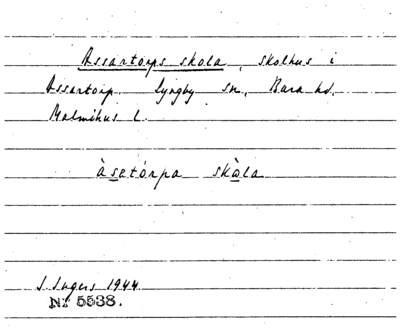 Assartorps skola, skolhus i
Assartorp. Lyngby sn., Bara hd.
Malmöhus l.
àsetórpa skòla
I. Ingers 1944
Nº 5538.